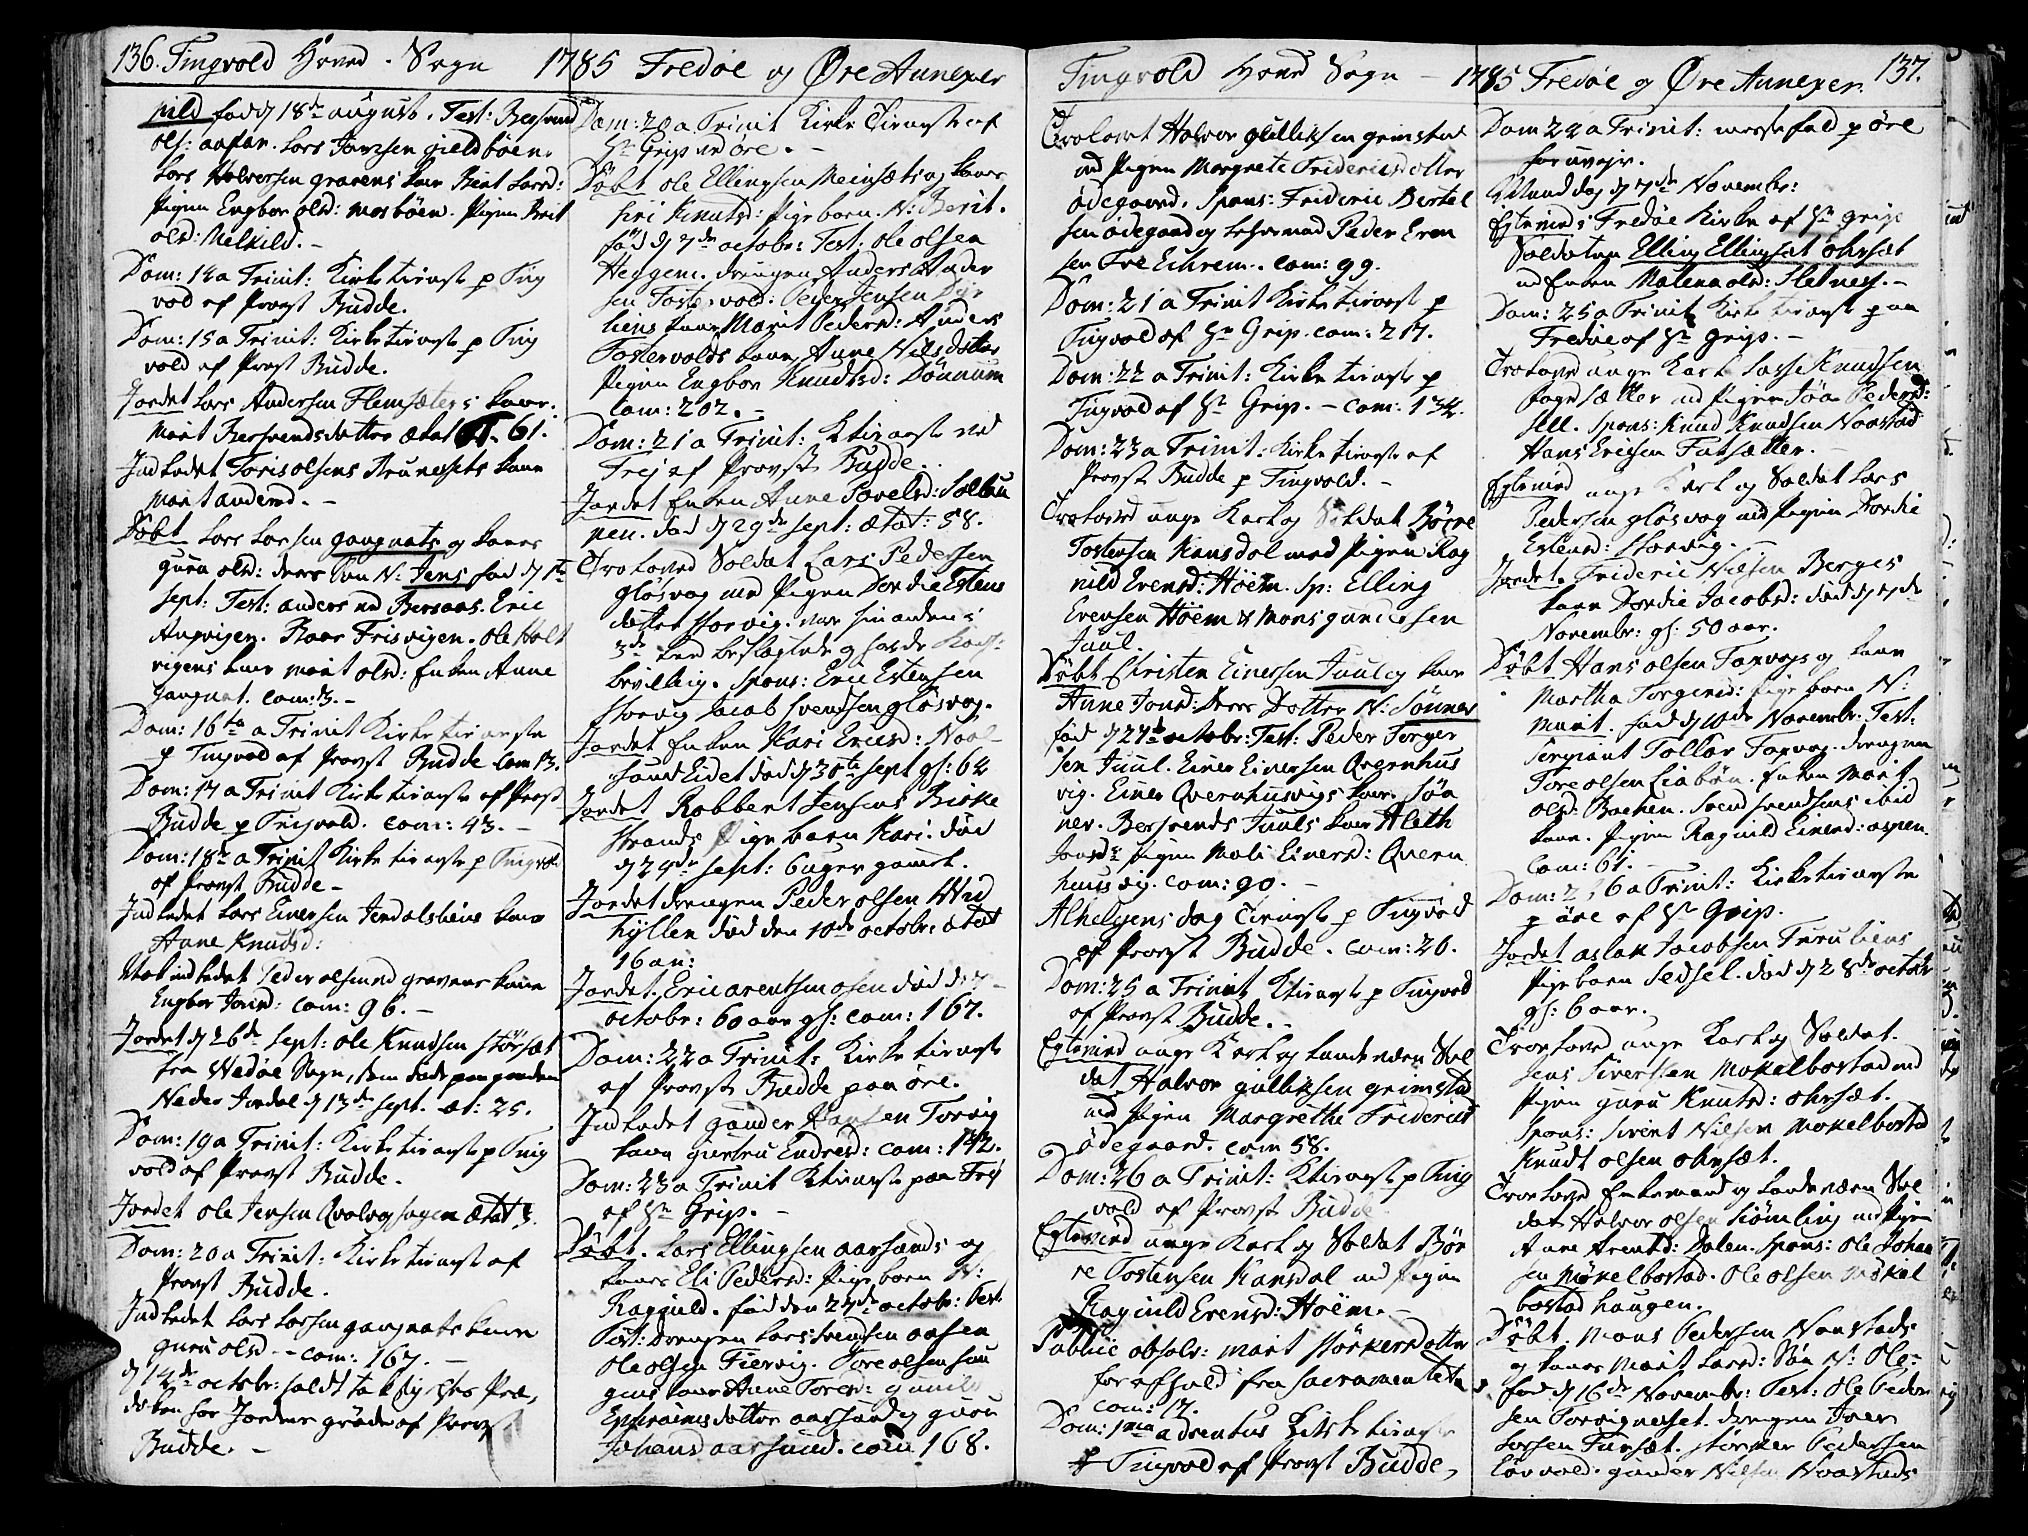 136. Tingvold Hoved-Sogn 1785 Fredøe og Øre Annexer
nild fød d 18de august. Test: Bersvend
ols: aasan. Lars Jonsen gieldbøen.
Lars Halvorsen gravens kone Birit Larsd:
Pigen Engbor olsd: mosbøen. Pigen Birit
olsd: Melkild. -
Dom: 14 a Trinit: Kirke tieneste p Ting
vold af Provst Budde.
Dom: 15 a Trinit: Kirke tieneste p Ting
vold af Provst Budde.
Jordet Lars Andersen Flemsæters kone:
Marit Bersvendsdatter ætat 61.
Indledet Toris olsens kone
Marit andersd. -
Døbt Lars Larsen gangnats og kones
guru olsd: deres Søn N: Jens fød d 1te
Sept: Test: anders Bersaas. Eric
Angvigen. Roar Frisvigen. Ole Holt
vigens kone marit olsd: Enken Anne
gangnat. com: 13. -
Dom: 16te a Trinit Kirke tieneste
p Tingvold af Provst Budde com 13.
Dom: 17 a Trinit Kirke tieneste af Provst
Budde p Tingvold. com: 43. -
Dom: 18de a Trinit Kirke tieneste p Tingvold
af Provst Budde -
Indledet Lars Einersen Jerdalsliens kone
Anne Knudsd:
Indledet Peder olsen gravens kone
Engbor Jonsd: com: 96. -
Jordet d 26de Sept: ole Knudsen størsæt
fra Wedøe Sogn, som døde paa gaarden
Neder Jordal d 13de Sept. æt: 25.
Dom: 19 a Trinit: Kirke tieneste p Ting
vold af Provst Budde.
Jordet ole Jensen Qvalvogshagen ætat 3.
Dom: 20 a Trinit: Kirke tieneste af
Provst Budde.
Indledet Lars Larsen gangnats kone
guru olsd - com: 167. -
d 14de octobr: holdt taksigelses Præ,
diken for Jordens grøde af Provst
Budde. -
Dom: 20 a Trinit Kirke Tieneste af
Hr Grip ved øre. -
Døbt ole Ellingsen Meinsæts og kones
Siri Knutsd: Pige barn. N: Berit.
fød d 7de octobr: Test: ole olsen
Heggem. drengen Anders Ander
sen Fostervold. Peder Jensen Dyr
liens kone Marit Pedersd: Anders
Fostervolds kone Anne Nilsdatter
Pigen Engbor Knudtsd: Dønnum
Com: 202. -
Dom: 21 a Trinit: K tieneste ved
Frej af Provst Budde.
Jordet Enken Anne Povelsd: Solbu
nen. død d 29de Sept: ætat: 58.
Trolovet Soldat Lars Pedersen
gløsvog med Pigen Dordie Estens
datter Storvig. var hinanden i
3de led beslægtede og havde Kong:
bevilling. Spons: Eric Estensen
Storvig Jacob Svendsen gløsvog.
Jordet Enken Kari Ericsd: Naal
sund Eidet død d 30te Sept gl: 64
Jordet Robbert Jensens Birke
strands Pige barn Kari. død
d 29de Sept: 6 uger gamel.
Jordet drengen Peder olsen Hvid
hyllen død den 10de octobr: ætat
16 an:
Jordet. Eric arentsen osen død d: 7
octobr: 60 aar gl: com: 167.
Dom: 22 a Trinit: Kirke tieneste
af Provst Budde paa øre.
Indledet gunder Hansen Torvig
kone gurtru Endresd: com: 142.
Dom: 23 a Trinit K tieneste paa Frej
af Hr Grip. -
Døbt. Lars Ellingsen aarsunds og
kones Eli Pedersd: Pige barn N:
Ragnild. fød den 27de octobr: Test
Test: drengen Lars Svendsen aasen
Ole olsen Fiervig. Tore olsen
kone Anne Toresd: gunild
Ephraimsdatter aarsund og guru
Johansd aarsund. com 168.
Tingvold Hoved Sogn - 1785 Fredøe og Øre Annexer. 137.
Trolovet Halvor gulliksen grimstad
med Pigen Margrete Friderics dotter
ødegaard. Spons: Frideric Bertel
sen ødegaard og Peder Even
sen Tre Eikrem. com: 99.
Dom: 21 a Trinit Kirke tieneste p
Tingvold af Hr Grip. com: 217.
Dom: 22 a Trinit: Kirke tieneste p
Tingvold af Hr Grip. - com: 134.
Dom: 23 a Trinit: Kirke tieneste af
Provst Budde p Tingvold. -
Trolovet unge Karl og Soldat Børre
Tostensen Kansdol med Pigen Rag
nild Evensd: Høem. Sp: Elling
Evensen Høem & Mons gundersen
Juul.
Døbt Christen Einersen Juul og kone
Anne Jonsd: deres Dotter N: Sønnev
fød d 27de octobr: Test: Peder Torger
sen Juul. Einer Einersen Qvernhus
vig. Einer Qvernhusvigs kone. Søn
nev. Bersvends Juuls kone Aleth
Jonsdr pigen Mali Einersd: Qvern
huusvig. com: 90. -
Alhelgens dag tieneste p Tingvold
af Provst Budde. com: 26.
Dom: 25 a Trinit K tieneste p Tingvold
af Provst Budde. -
Egteviet unge Karl og landeværn Sol
dat Halvor gulliksen grimstad
med pigen Margrethe Fridericsd
ødegaard. com 58.
Dom: 26 a Trinit: K tieneste p Ting
vold af Provst Budde
Egteviet unge Karl og Soldat Bør
re Tostensen Kansdal med Pigen
Ragnild Evensd: Høem. -
Public absolv: marit størkersdatter
for afhold fra Sacramentet
com: 17.
Dom: 1ma adventus Kirke tieneste
p Tingvold af Provst Budde,
Dom 22 a Trinit: messefald p øre
for uvejr.
Mandag d 7de November:
Egteviet i Fredøe Kirke af Hr grip
Soldaten Elling Ellingsøt ohrsæt
med Enken Malena olsd: Fletnes. -
Dom: 25 a Trinit Kirke tieneste paa
Fredøe af Hr Grip. -
Trolovet unge Karl Lasse Knudsen
Fogsætter med Pigen Jøa Pedersd:
sell. Spons: Knud Knudsen Naastad
Hans Ericsen Fatsætter.
Egteviet unge Karl og Soldat Lars
Pedersen gløsvog med Pigen Dordie
Estensd: Storvig. -
Jordet. Frideric Nilsen Berges
kone Dordie Jacobsd: død d 4de
Novembr: gl: 50 aar.
Døbt Hans olsen Taxvogs og kone
Martha Torgersd: Pige barn N:
Marit. fød d 10de Novembr: Test:
Sergiant Tollør Taxvog. drengen
Tore olsen Liabøen. Enken Marit
olsd: Bachen. Svend Svendsens ibid
kone. Pigen Ragnild Einersd: aspen.
Com: 61. -
Dom: 26 a Trinit: Kirke tieneste
p øre af Hr Grip.
Jordet aslak Jacobsen Furuliens
Pige barn Sedsel. død d 28de octobr
gl: 6 aar.
Trolovet unge Karl og Soldat.
Jens Siversen Mækelbostad med
Pigen guru Knutsd: ohrsæt.
Spons: Sivert Nilsen Mækelbostad
Knudt olsen ohrsæt.
Trolovet Enkemand og Landeværn Sol
dat Halvor olsen Siømling med Pigen
Anne Arentsd: Dalen. Spons: Ole Johan
sen Mækelbostad. Ole olsen Mækel
bostad haugen.
Døbt. Mons Pedersen Naastads
og kones Marit Larsd: Søn N: Ole:
fød d 16de November: Test: Ole Peder
sen Torvigneset. drengen Iver
Larsen Fursæt. Størker Pedersen
Løvvold. gunder Nilsen Naastads